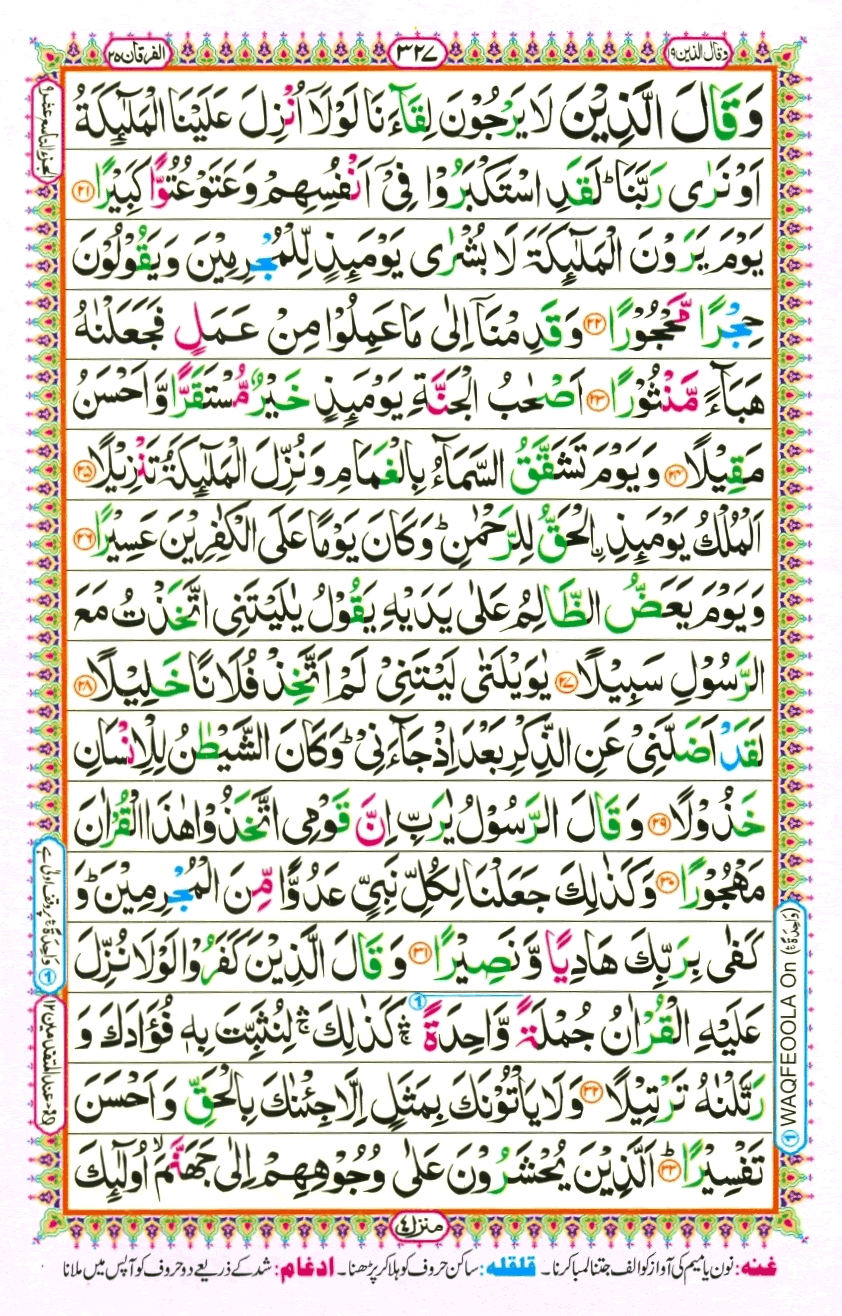 وقال الذین ۱۹
۳۲۷
الفرقان ۲۵
وَقَالَ الَّذِیْنَ لَا یَرْجُوْنَ لِقَآءَنَا لَوْلَاۤ اُنْزِلَ عَلَیْنَا الْمَلٰٓىِٕكَةُ
اَوْ نَرٰی رَبَّنَا ؕ لَقَدِ اسْتَكْبَرُوْا فِیْۤ اَنْفُسِهِمْ وَعَتَوْ عُتُوًّا كَبِیْرًا ۲۱
یَوْمَ یَرَوْنَ الْمَلٰٓىِٕكَةَ لَا بُشْرٰی یَوْمَىِٕذٍ لِّلْمُجْرِمِیْنَ وَیَقُوْلُوْنَ
حِجْرًا مَّحْجُوْرًا ۲۲ وَقَدِمْنَاۤ اِلٰی مَا عَمِلُوْا مِنْ عَمَلٍ فَجَعَلْنٰهُ
هَبَآءً مَّنْثُوْرًا ۲۳ اَصْحٰبُ الْجَنَّةِ یَوْمَىِٕذٍ خَیْرٌ مُّسْتَقَرًّا وَّاَحْسَنُ
مَقِیْلًا ۲۴ وَیَوْمَ تَشَقَّقُ السَّمَآءُ بِالْغَمَامِ وَنُزِّلَ الْمَلٰٓىِٕكَةُ تَنْزِیْلًا ۲۵
اَلْمُلْكُ یَوْمَىِٕذِ ِ۟الْحَقُّ لِلرَّحْمٰنِ ؕ وَكَانَ یَوْمًا عَلَی الْكٰفِرِیْنَ عَسِیْرًا ۲۶
وَیَوْمَ یَعَضُّ الظَّالِمُ عَلٰی یَدَیْهِ یَقُوْلُ یٰلَیْتَنِی اتَّخَذْتُ مَعَ
الرَّسُوْلِ سَبِیْلًا ۲۷ یٰوَیْلَتٰی لَیْتَنِیْ لَمْ اَتَّخِذْ فُلَانًا خَلِیْلًا ۲۸
لَقَدْ اَضَلَّنِیْ عَنِ الذِّكْرِ بَعْدَ اِذْ جَآءَنِیْ ؕ وَكَانَ الشَّیْطٰنُ لِلْاِنْسَانِ
خَذُوْلًا ۲۹ وَقَالَ الرَّسُوْلُ یٰرَبِّ اِنَّ قَوْمِی اتَّخَذُوْا هٰذَا الْقُرْاٰنَ
مَهْجُوْرًا ۳۰ وَكَذٰلِكَ جَعَلْنَا لِكُلِّ نَبِیٍّ عَدُوًّا مِّنَ الْمُجْرِمِیْنَ ؕ وَ
كَفٰی بِرَبِّكَ هَادِیًا وَّنَصِیْرًا ۳۱ وَقَالَ الَّذِیْنَ كَفَرُوْا لَوْلَا نُزِّلَ
عَلَیْهِ الْقُرْاٰنُ جُمْلَةً وَّاحِدَةً ۛۚ كَذٰلِكَ ۛۚ لِنُثَبِّتَ بِهٖ فُؤَادَكَ وَ
رَتَّلْنٰهُ تَرْتِیْلًا ۳۲ وَلَا یَاْتُوْنَكَ بِمَثَلٍ اِلَّا جِئْنٰكَ بِالْحَقِّ وَاَحْسَنَ
تَفْسِیْرًا ؕ ۳۳ اَلَّذِیْنَ یُحْشَرُوْنَ عَلٰی وُجُوْهِهِمْ اِلٰی جَهَنَّمَ ۙ اُولٰٓىِٕكَ
١ WAQFEOOLA On (وَاحِدَةً ۛۚ)
١ وَاحِدَةً ۛۚ پر وقف اولیٰ ہے
منزل ٤
غنه: نون یا میم کی آواز کو الف جتنا لمبا کرنا۔ قلقله: ساکن حروف کو ہلا کر پڑھنا۔ ادغام: شد کے ذریعے دو حروف کو آپس میں ملانا